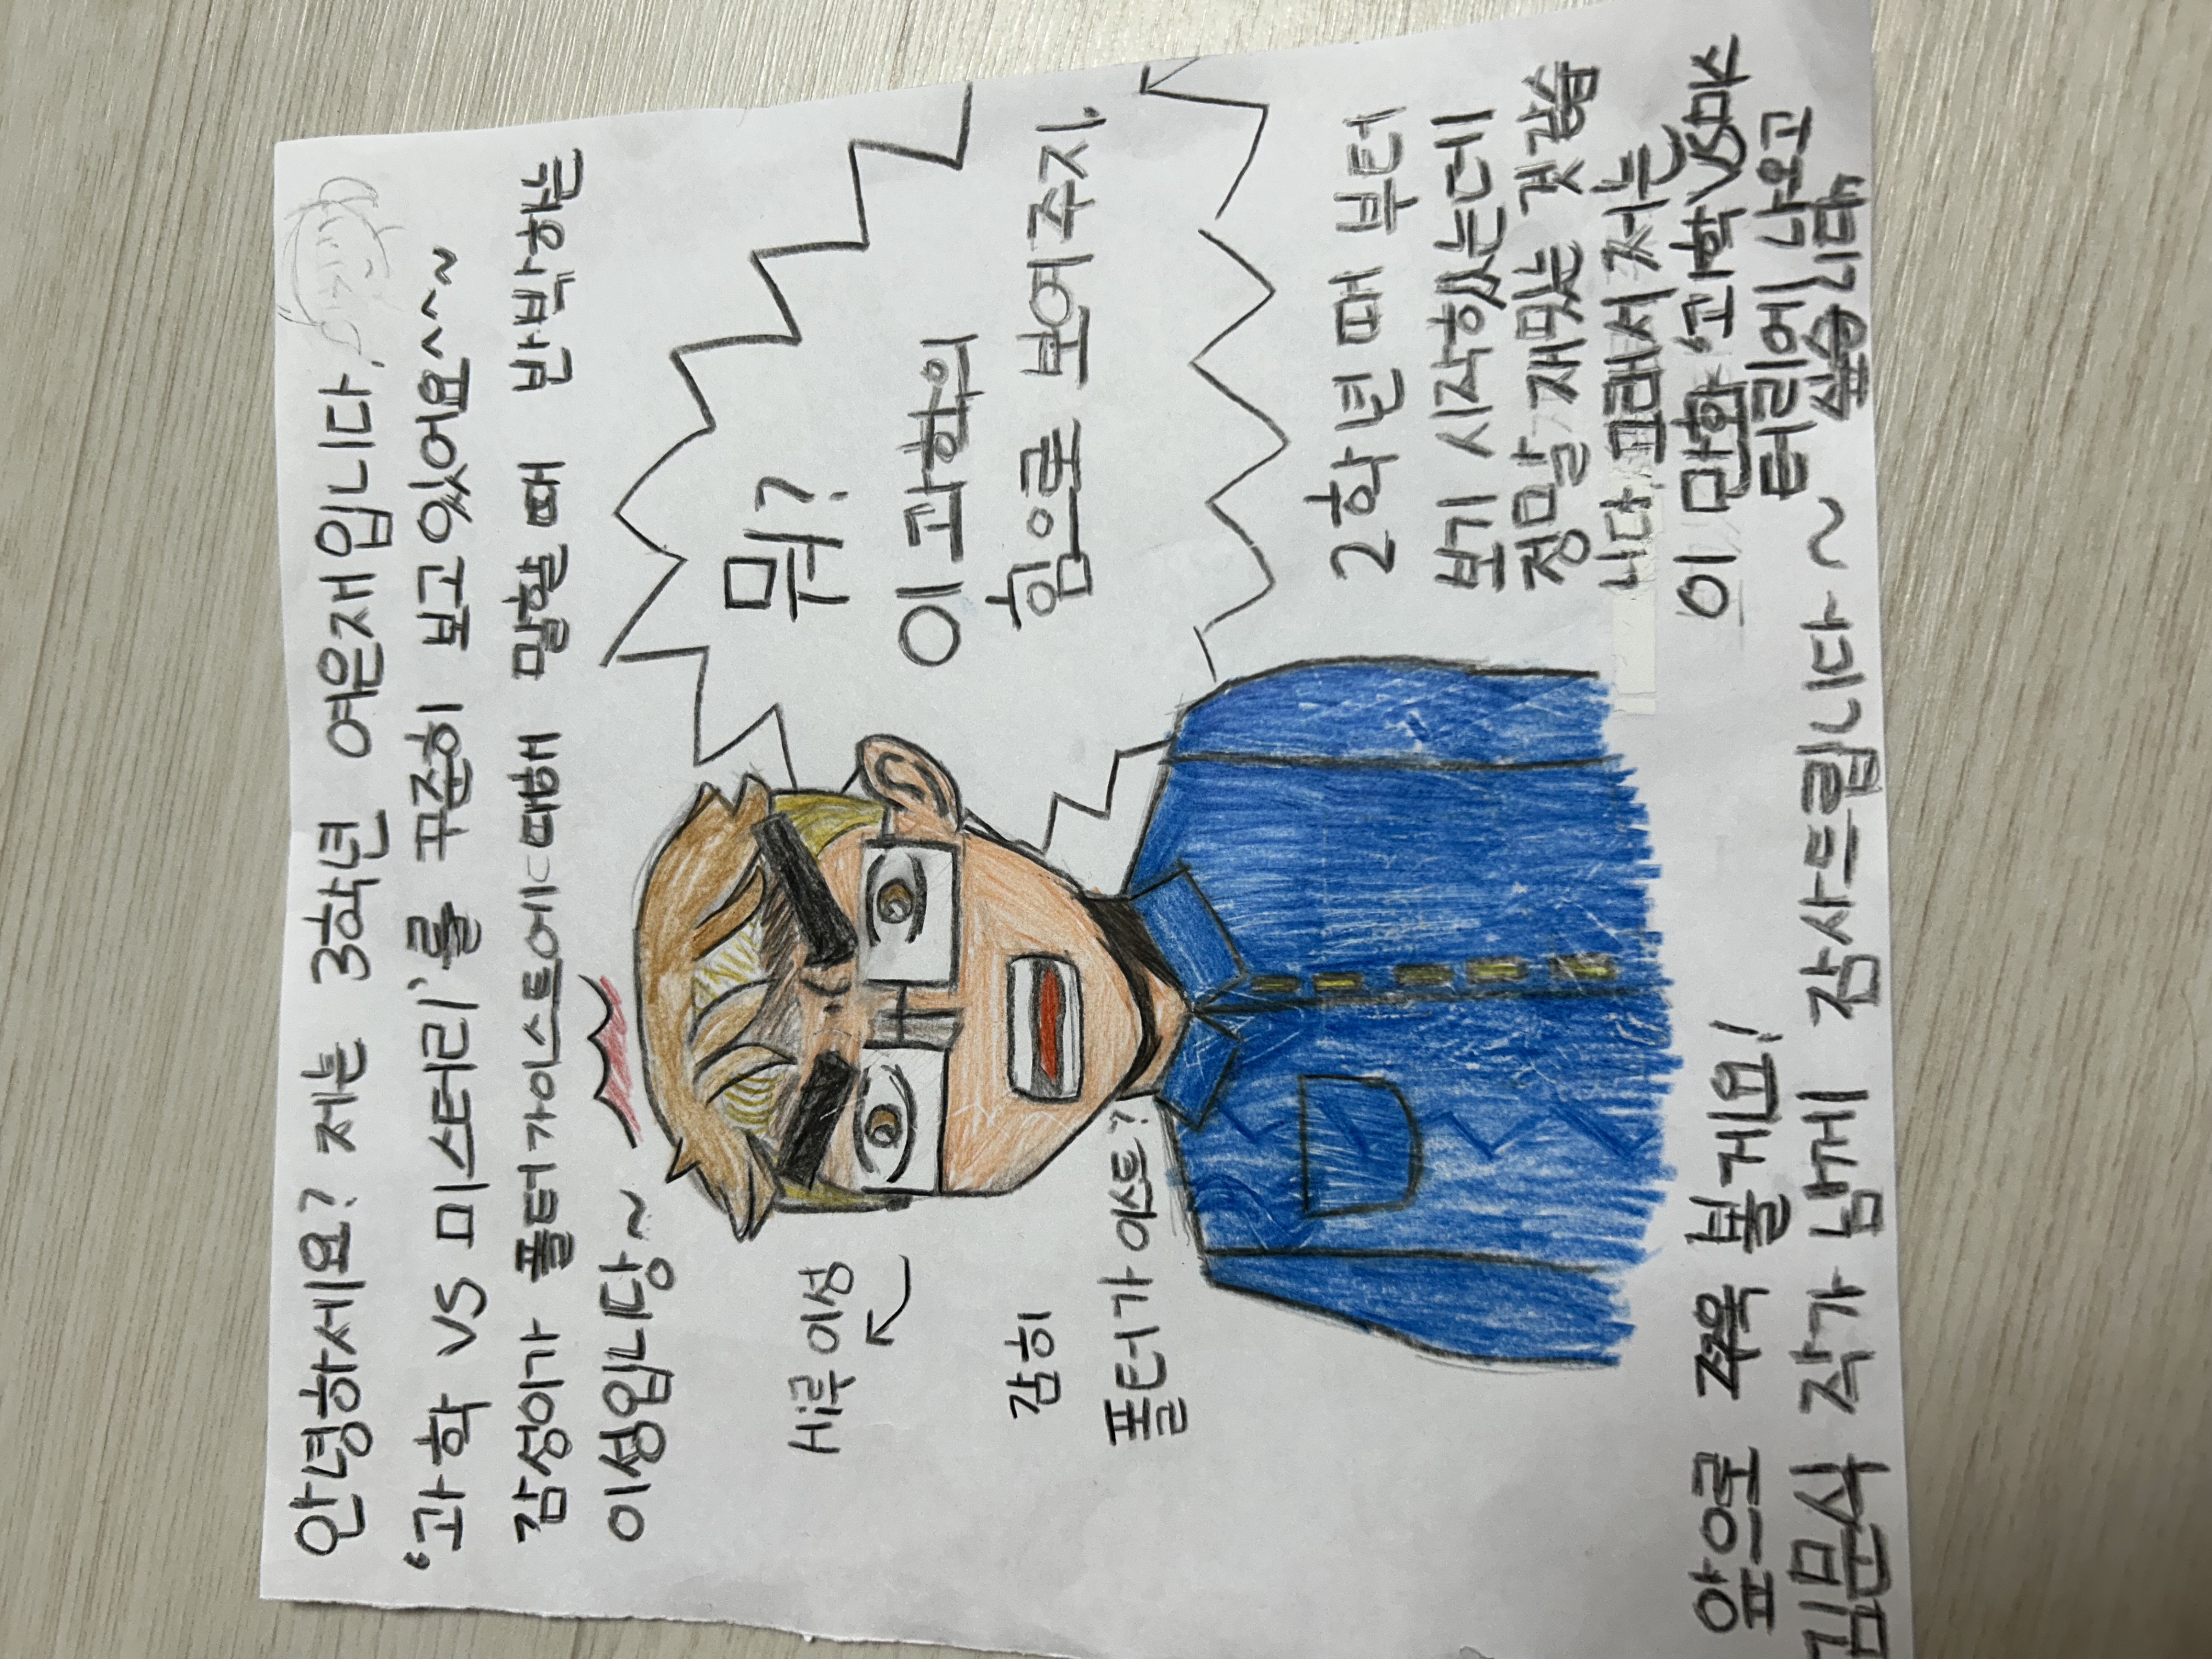 안녕하세요? 저는 3학년 여은재입니다.
'과학 VS 미스터리'를 꾸준히 보고있어요~~~
감성이가 폴터가이스트에 대해 말할 때 반박하는
이성입니당~
Hi루 이성
감히
폴터가이스트?
뭐?
이 과학의
힘으로 보여주지.
2학년 때 부터
보기 시작했는데
정말 재밌는 것 같습
니다. 그래서 저는
이 만화 '과학VS미스
터리'에 나오고
싶습니다.
앞으로 쭈욱 볼게요!
김문식 작가 님께 감사드립니다~